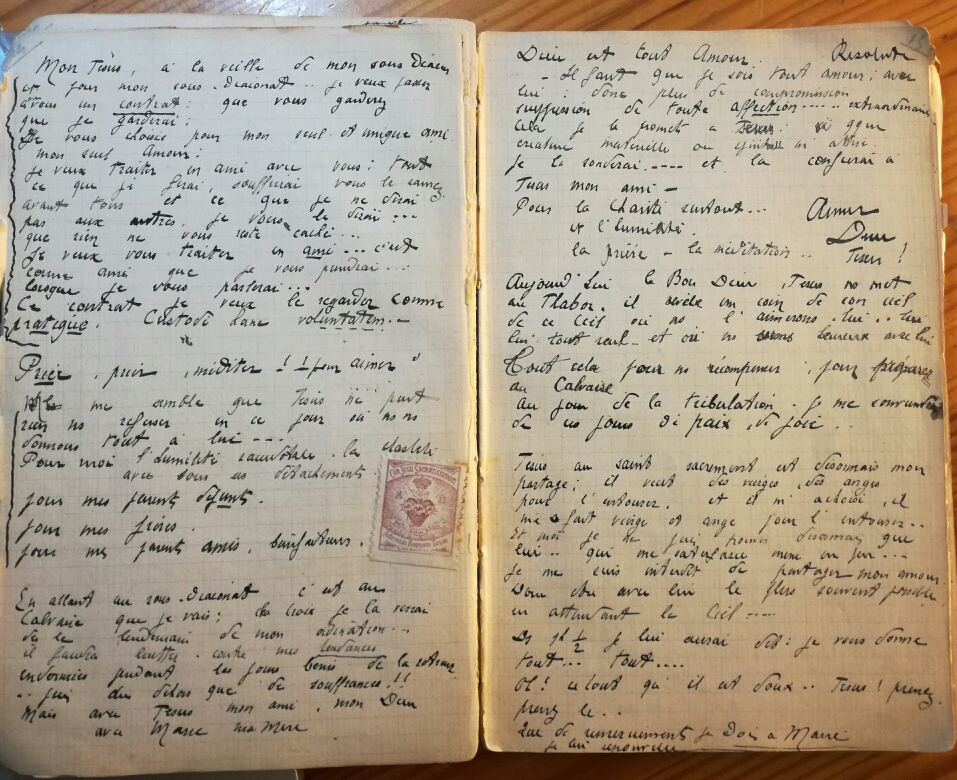 Mon Jésus, à la veille de mon sous Diacon
et pour mon sous-diaconat.. je veux passer
avec vous un contrat: que vous garderez
que je garderai:
Je vous choisis pour mon seul et unique ami
mon seul Amour:
je veux traiter en ami avec vous: tout
ce que je ferai, souffrirai vous le saurez
avant tous et ce que je ne dirai
pas aux autres je vous le dirai...
que rien ne vous reste caché...
Je veux vous traiter en ami... c'est
comme ami que je vous prendrai...
lorsque je vous parlerai...
Ce contrat je veux le regarder comme
pratique. Custodi hanc voluntatem.-
Prier, prier, méditer!! pour aimer"
me semble que Jésus ne peut
rien ns refuser en ce jour où ns ns
donnons tout à lui ---
Pour moi l'humilité sacerdotale. la chasteté
avec tous ces détachements
pour mes parents défunts.
pour mes frères.
pour mes parents amis, bienfaiteurs.
COR JESU SACRATISSIMUM
Adveniat Regnum Tuum
En allant au sous-diaconat c'est au
Calvaire que je vais: la croix je la verrai
dès le lendemain de mon ordination...
il faudra lutter contre mes tendances
endormies pendant les jours bénis de la retraite
que de souffrances!!
Mais avec Jésus mon ami, mon Dieu
avec Marie ma Mère
Dieu est tout Amour. Résolut
- Il faut que je sois tout amour; avec
lui: donc plus de compromission
suppression de toute affection..... extraordinaire
cela je le promets à Jésus. si qque
créature matérielle ou spirituelle m'attire
je la sonderai.---- et la confierai à
Jésus mon ami -
Pour la Charité surtout... Aimer
et l'humilité. Dieu
la prière - la méditation.. Jésus!
Aujourd'hui le Bon Dieu, Jésus ns met
au Thabor. il révèle un coin de son ciel
de ce Ciel où ns l'aimerons. lui.. lui
lui tout seul - et où ns serons heureux avec lui
Tout cela pour ns récompenser, pour préparer
au Calvaire
Au jour de la tribulation je me souviendrai
de ces jours de paix, de joie..
Jésus au saint sacrement est désormais mon
partage; il veut des vierges, des anges
pour l'entourer, et il m'a choisi, il
m'a fait vierge et ange pour l'entourer..
Et moi je ne puis désormais que
lui..
je me suis interdit de partager mon amour
Donc être avec lui le plus souvent possible
en attendant le Ciel ----
je lui aurai dit: je vous donne
tout... tout....
Oh! qu'il est doux.. Jésus! prenez
prenez le..
Que de remerciements je dois à Marie
je lui renouvelle